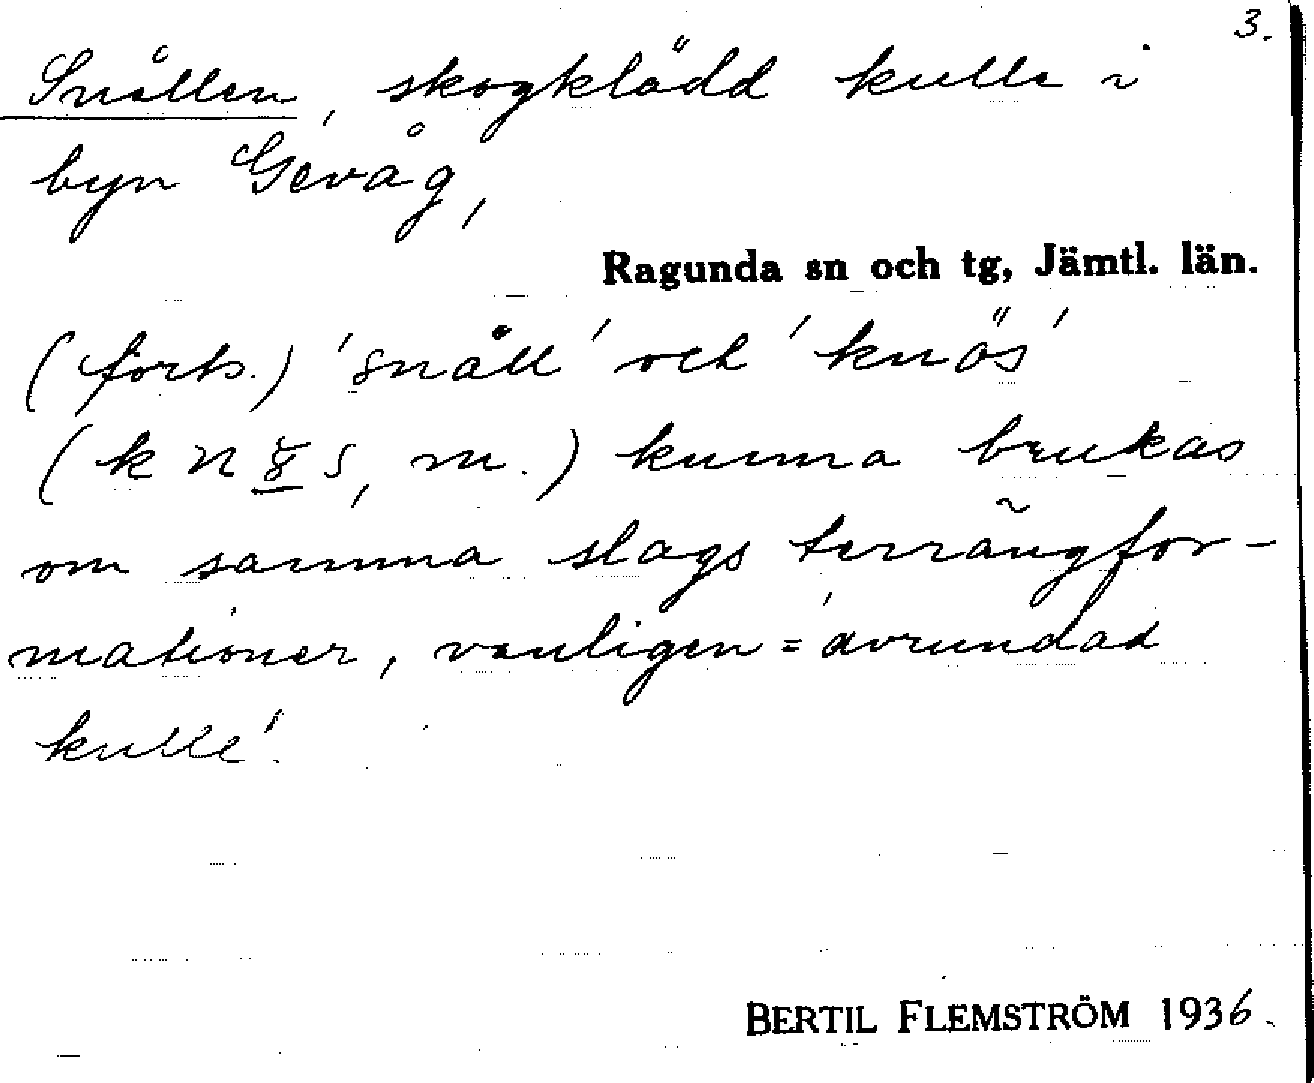 3.
Snållen, skogklädd kulle i
byn Gevåg,
Ragunda sn och tg, Jämtl. län.
(forts.) 'snåll' och 'knös'
(kn s, m.) kunna brukas
om samma slags terrängfor-
mationer, vanligen = 'avrundad
kulle'.
BERTIL FLEMSTRÖM 1936.